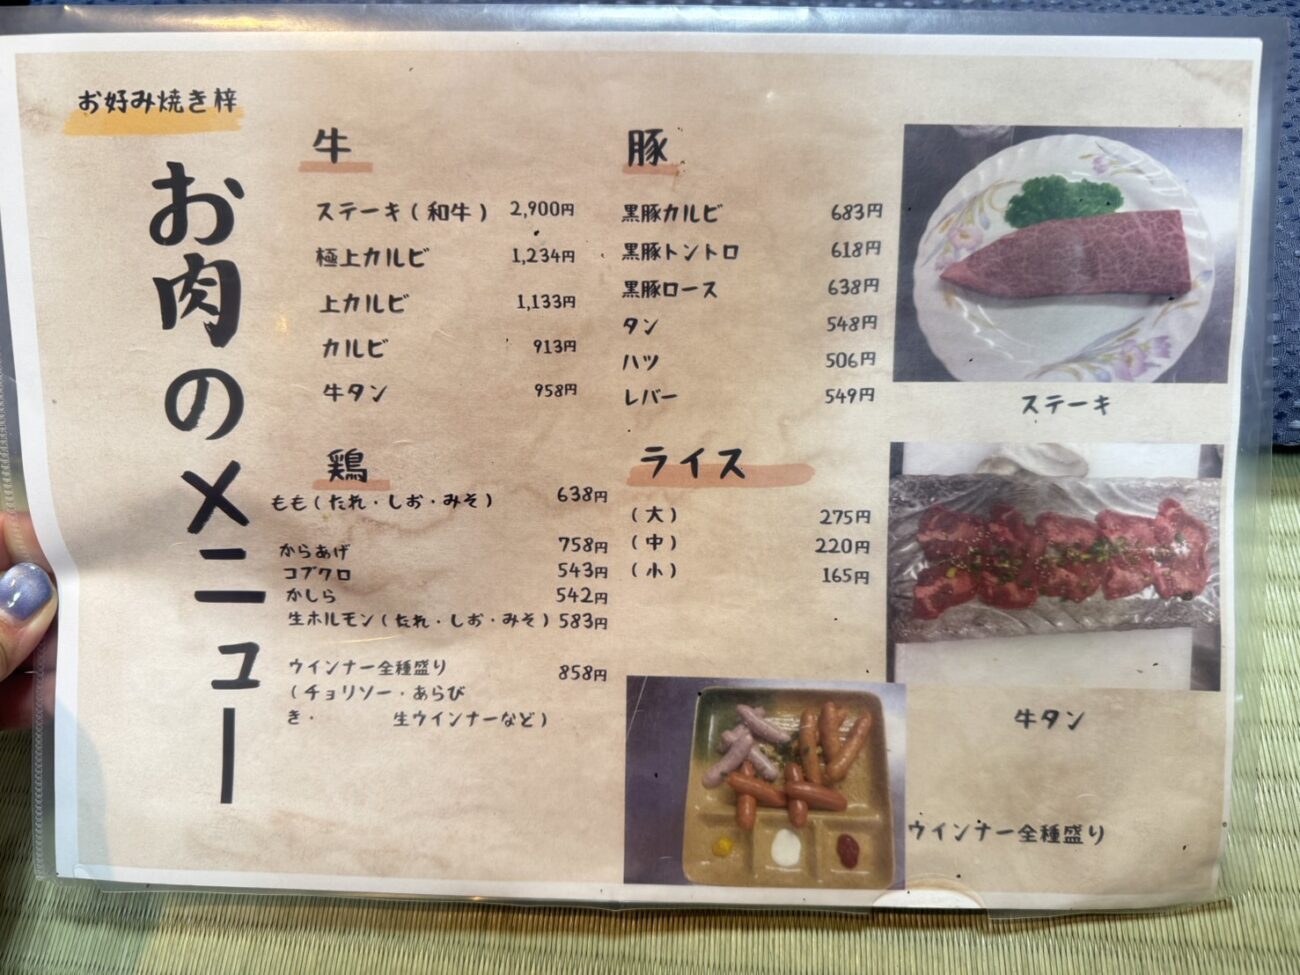 お好み焼き梓
お肉のメニュー
牛
ステーキ(和牛) 2,900円
極上カルビ 1,234円
上カルビ 1,133円
カルビ 913円
牛タン 958円
鶏
もも(たれ・しお・みそ) 638円
からあげ 758円
コブクロ 543円
かしら 542円
生ホルモン(たれ・しお・みそ) 583円
ウインナー全種盛り 858円
(チョリソー・あらび
き・ 生ウインナーなど)
豚
黒豚カルビ 683円
黒豚トントロ 618円
黒豚ロース 638円
タン 548円
ハツ 506円
レバー 549円
ライス
(大) 275円
(中) 220円
(小) 165円
ステーキ
牛タン
ウインナー全種盛り